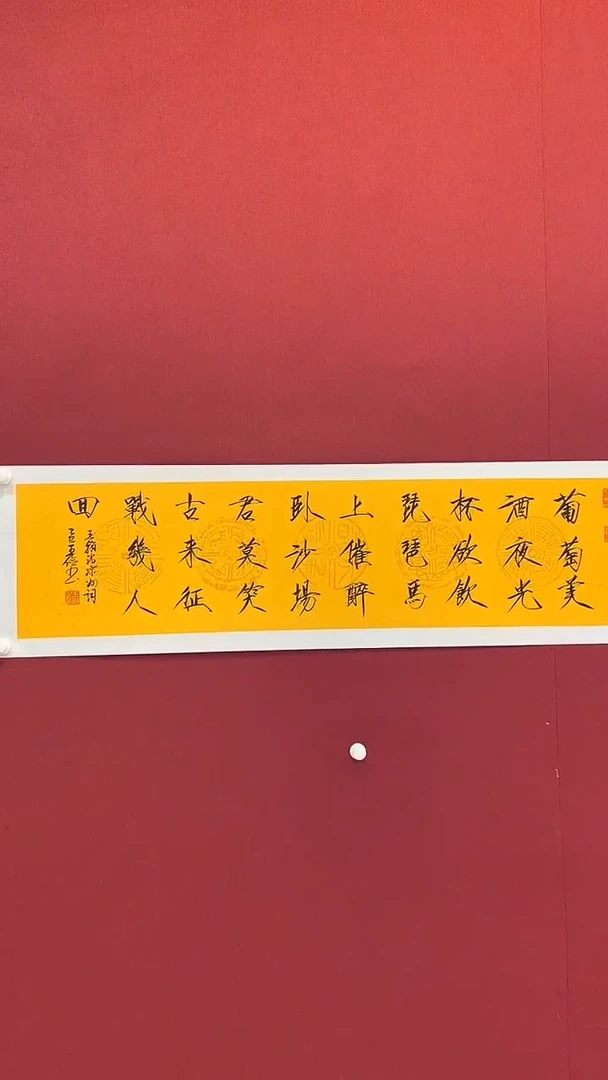 葡萄美
酒夜光
杯欲飲
琵琶馬
上催醉
臥沙場
君莫笑
古来征
戰幾人
回
王翰涼州詞